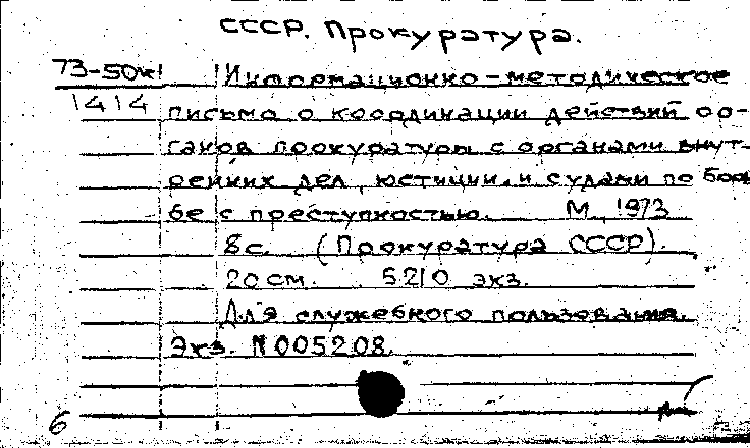 СССР. Прокуратура.
73-50к Информационно-методическое
1414 письмо о координации действий ор-
ганов прокуратуры с органами внут-
ренних дел, юстиции и судами по борь
бе с преступностью. М, 1973
8с. (Прокуратура СССР).
20 см. 5210 экз.
Для служебного пользования.
Экз. N005208.
6